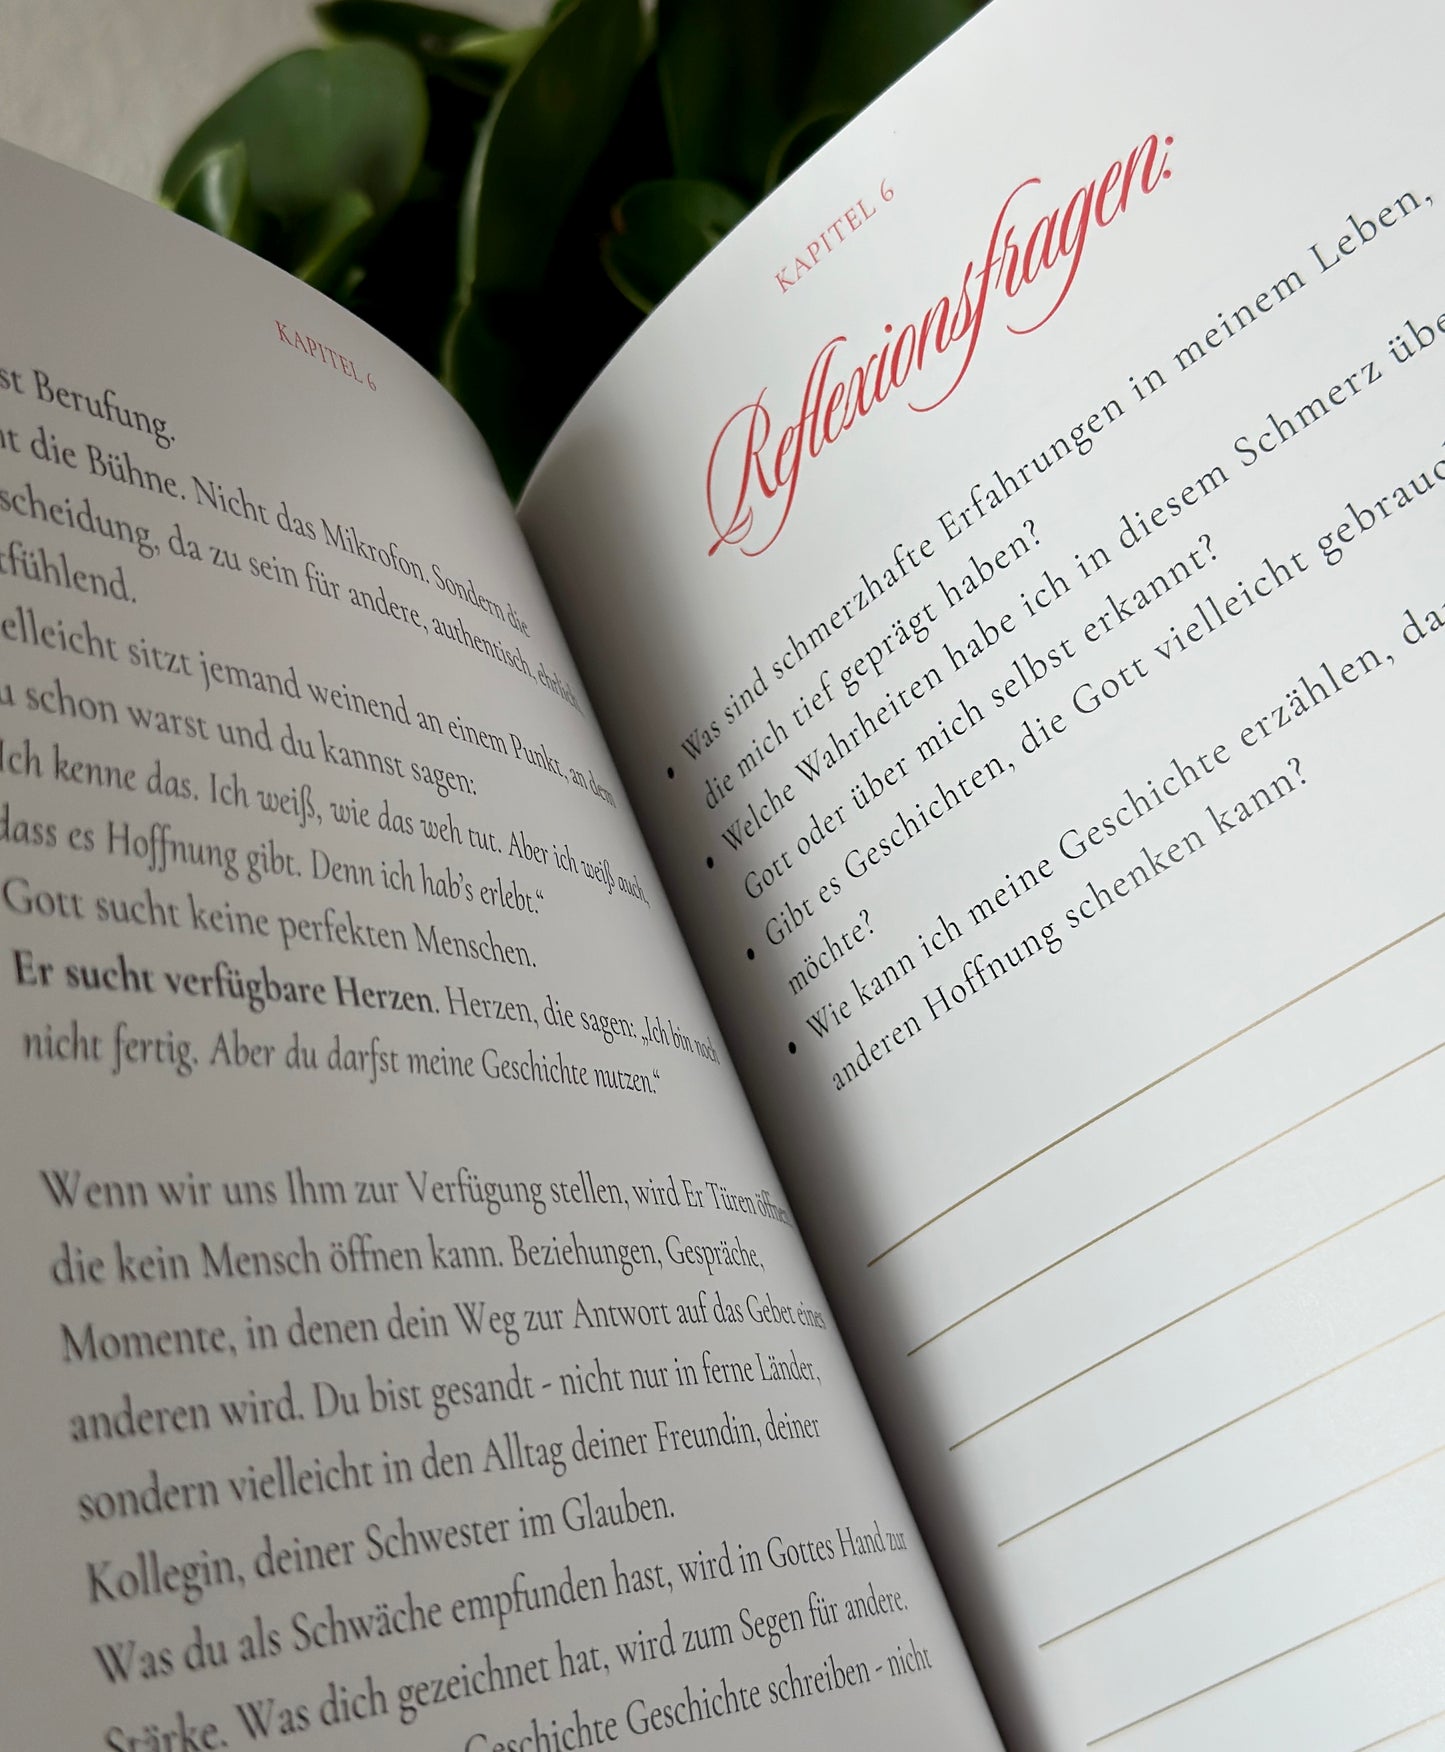 KAPITEL 6
Berufung.
die Bühne. Nicht das Mikrofon. Sondern die
da zu sein für andere, authentisch, ehrlich,
sitzt jemand weinend an einem Punkt, an dem
schon warst und du kannst sagen:
Ich kenne das. Ich weiß, wie das weh tut. Aber ich weiß auch,
dass es Hoffnung gibt. Denn ich hab's erlebt.“
Gott sucht keine perfekten Menschen.
Er sucht verfügbare Herzen. Herzen, die sagen: „Ich bin noch
nicht fertig. Aber du darfst meine Geschichte nutzen.“
Wenn wir uns Ihm zur Verfügung stellen, wird Er Türen öffnen,
die kein Mensch öffnen kann. Beziehungen, Gespräche,
Momente, in denen dein Weg zur Antwort auf das Gebet eines
anderen wird. Du bist gesandt - nicht nur in ferne Länder,
sondern vielleicht in den Alltag deiner Freundin, deiner
Kollegin, deiner Schwester im Glauben.
Was du als Schwäche empfunden hast, wird in Gottes Hand zur
Stärke. Was dich gezeichnet hat, wird zum Segen für andere.
Geschichte Geschichte schreiben - nicht
KAPITEL 6
Reflexionsfragen:
• Was sind schmerzhafte Erfahrungen in meinem Leben,
die mich tief geprägt haben?
• Welche Wahrheiten habe ich in diesem Schmerz
Gott oder über mich selbst erkannt?
• Gibt es Geschichten, die Gott vielleicht
möchte?
• Wie kann ich meine Geschichte erzählen,
anderen Hoffnung schenken kann?